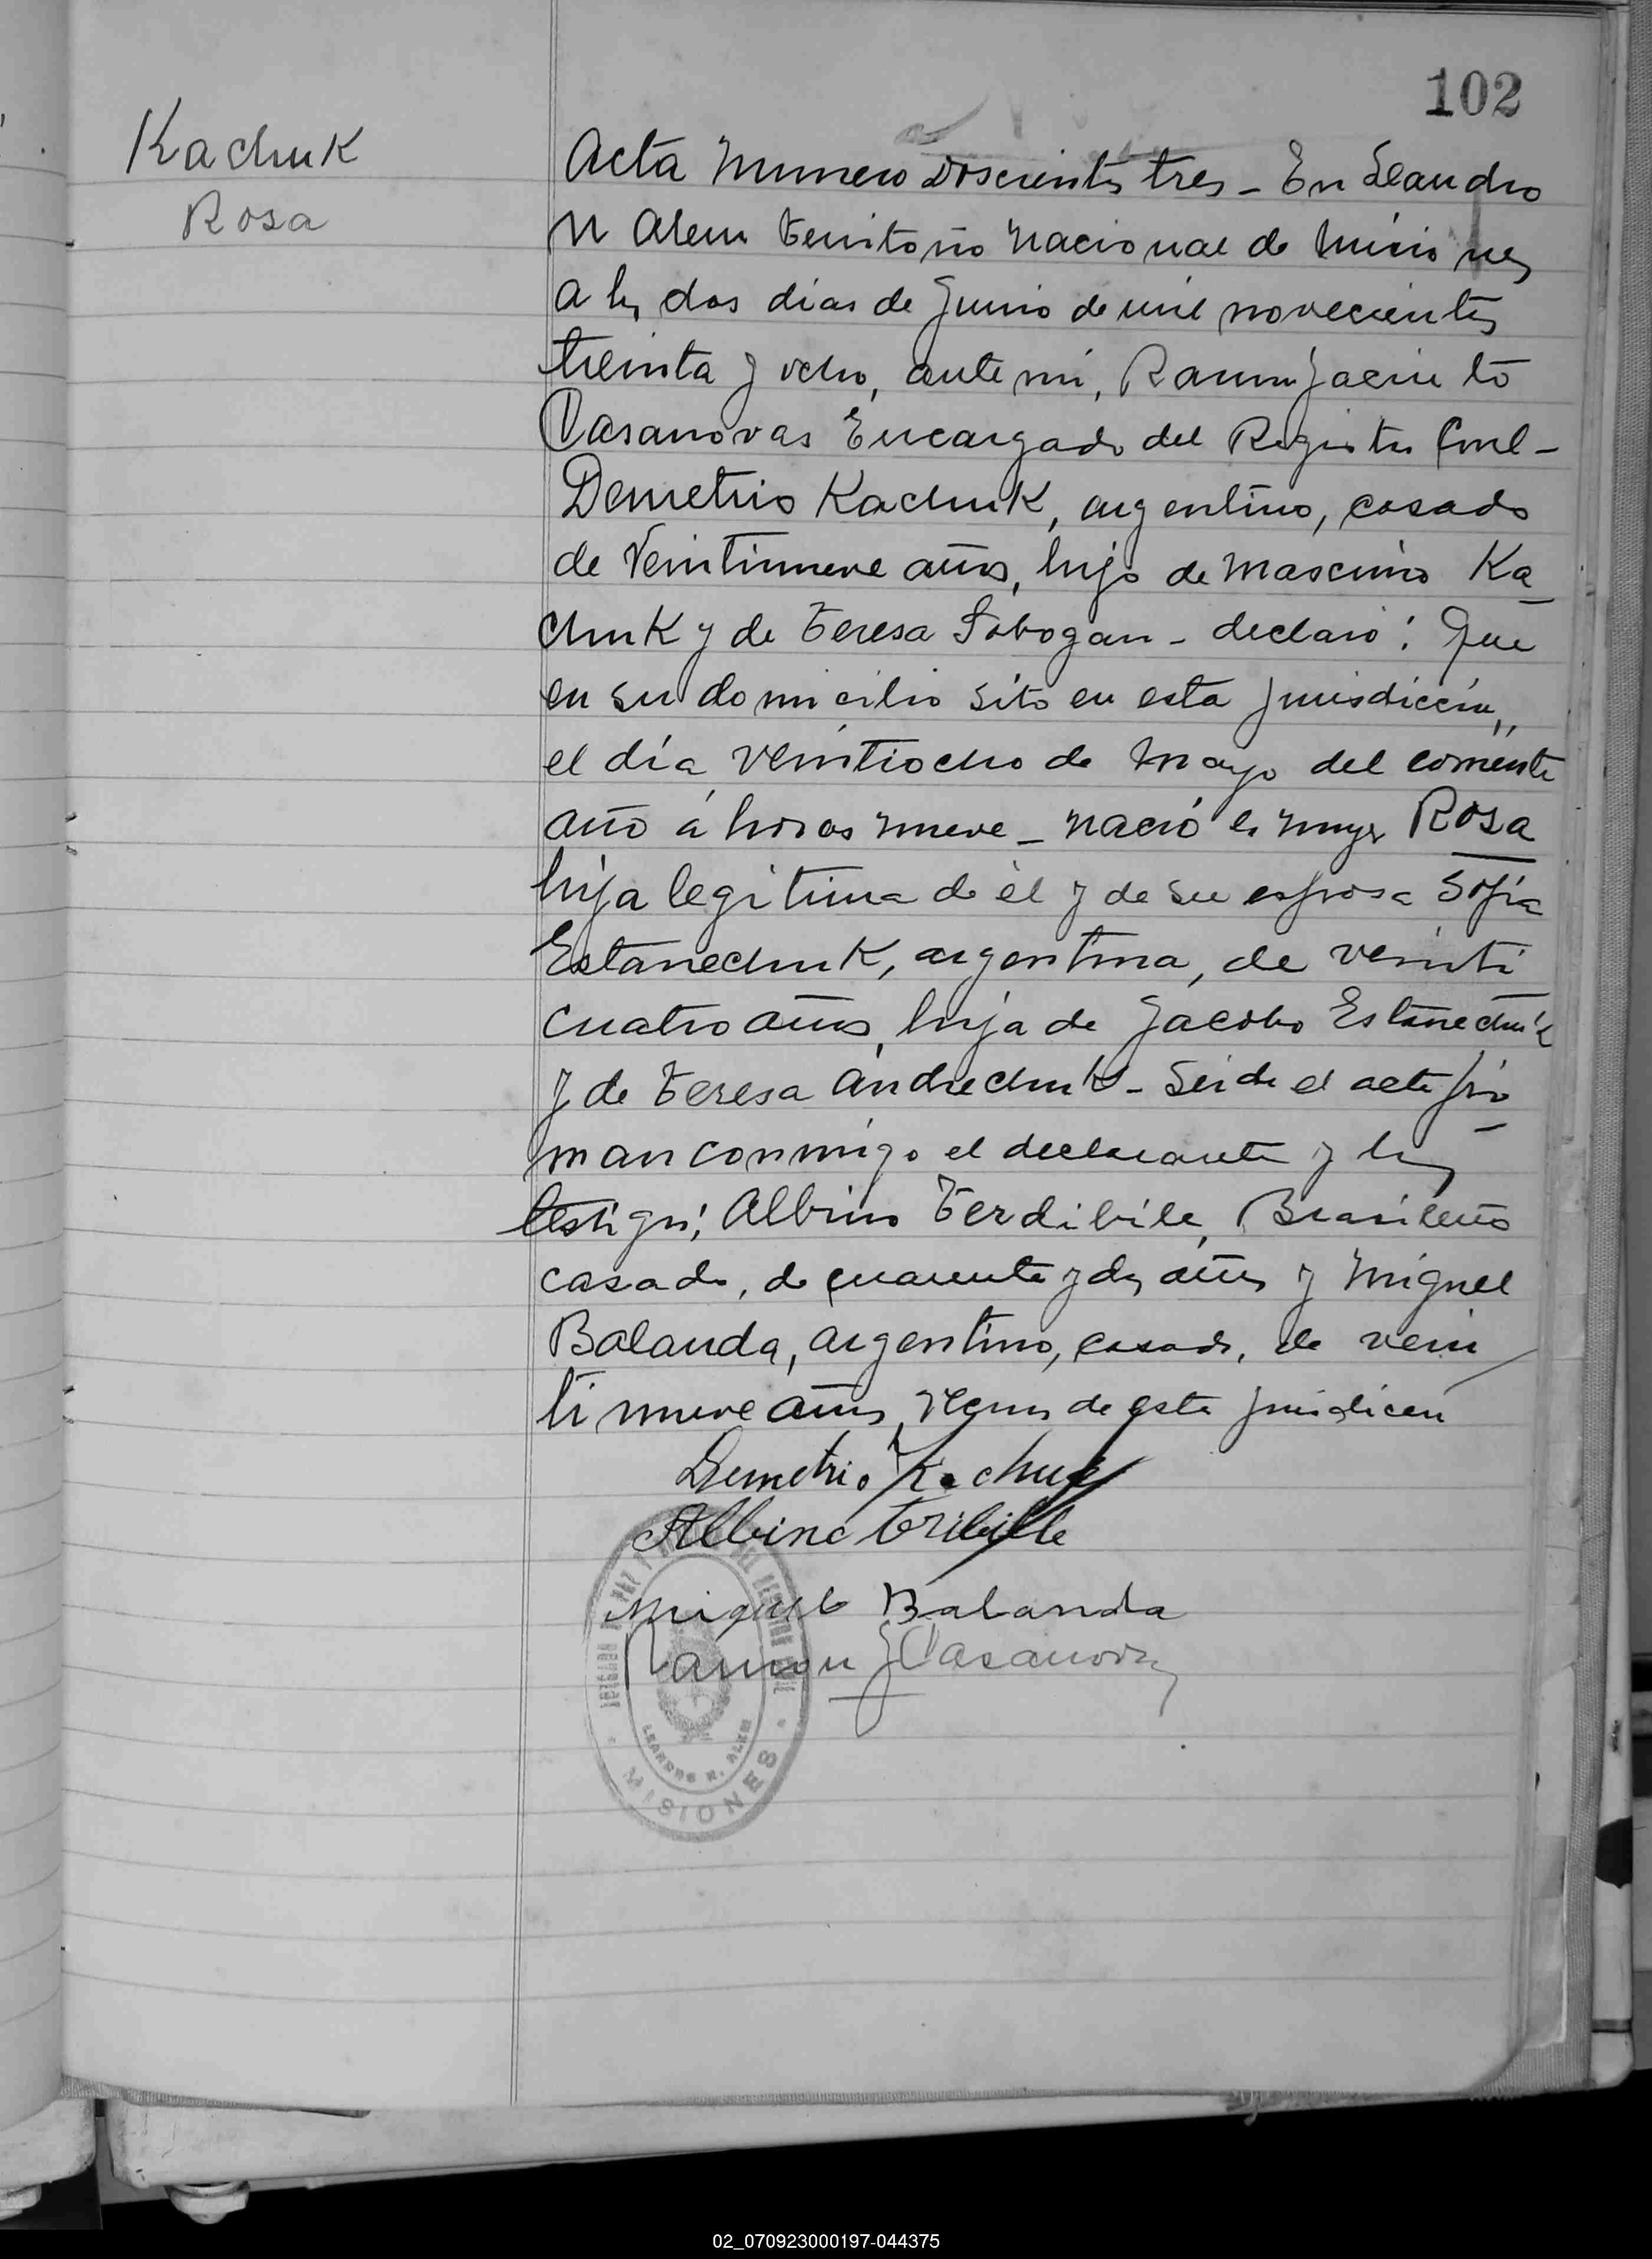 102
Kachuk
Rosa
Acta Numero Doscientos tres - En Leandro
N Alem Territorio Nacional de Misiones
a los dos dias de Junio de mil novecientos
treinta y ocho, ante mi, Ramon Jacinto
Casanovas Encargado del Registro Civil -
Demetrio Kachuk, argentino, casado
de Veintinueve años, hijo de Mascimo Ka
chuk y de Teresa Sobogan - declaró: Que
en su domicilio sito en esta Jurisdiccion,
el día veintiocho de Mayo del corriente
año á horas nueve - nació la mujer Rosa
hija legitima de él y de su esposa Sofia
Estanechuk, argentina, de veinti
cuatro años, hija de Jacobo Estanechuk
y de Teresa Andrechuk - Leida el acta fir
man conmigo el declarante y los
testigos: Albino Terdibile, Brasileño
casado, de cuarenta y dos años y Miguel
Balanda, argentino, casado, de vein
ti nueve años, vecinos de esta jurisdiccion
Demetrio Kachuk
Albino
Miguel Balanda
Ramon J Casanovas
REGISTRO CIVIL
LEANDRO N. ALEM
MISIONES
02_070923000197-044375